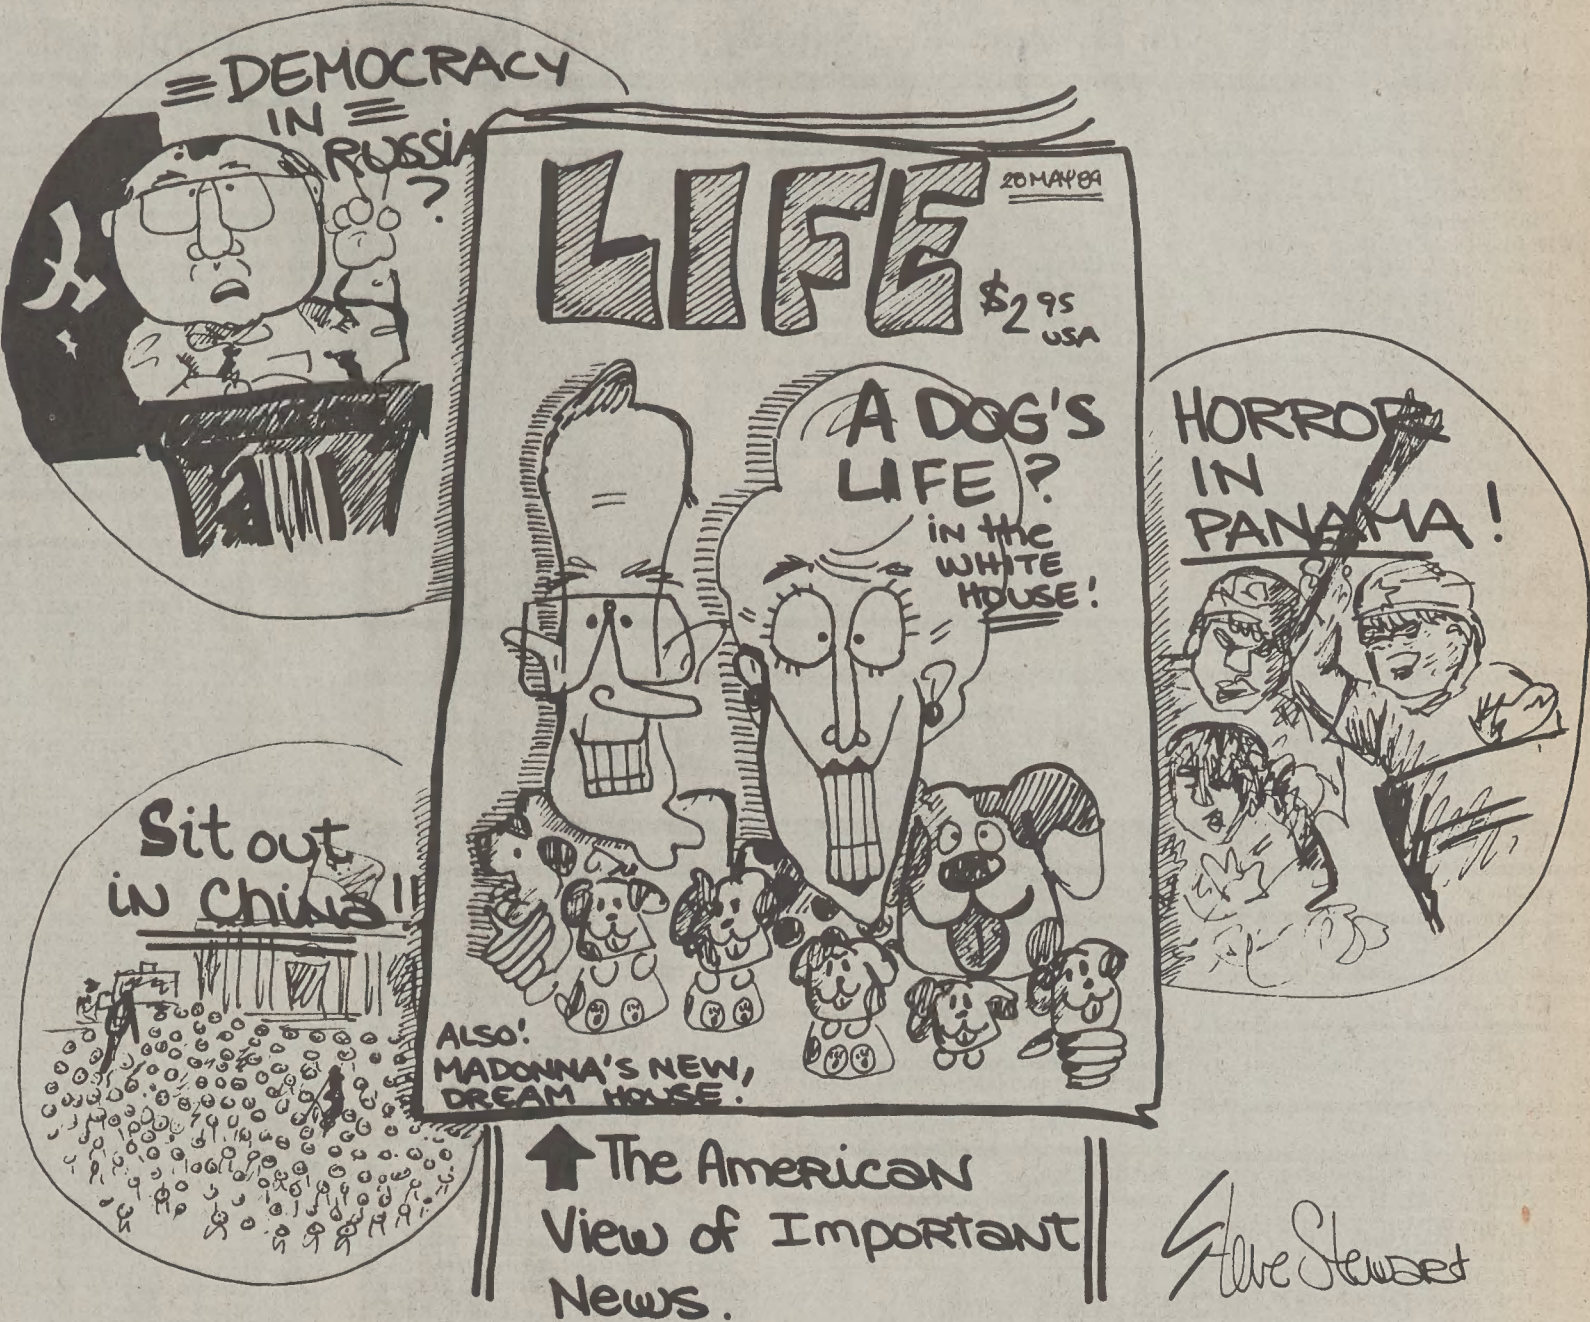 DEMOCRACY
IN
RUSSIA
?
LIFE
20 MAY 89
$2.95
USA
A DOG'S
LIFE?
in the
WHITE
HOUSE!
HORROR
IN
PANAMA!
Sit out
in China!!
ALSO!
MADONNA'S NEW,
DREAM HOUSE.
The American
View of Important
News.
Steve Stewart